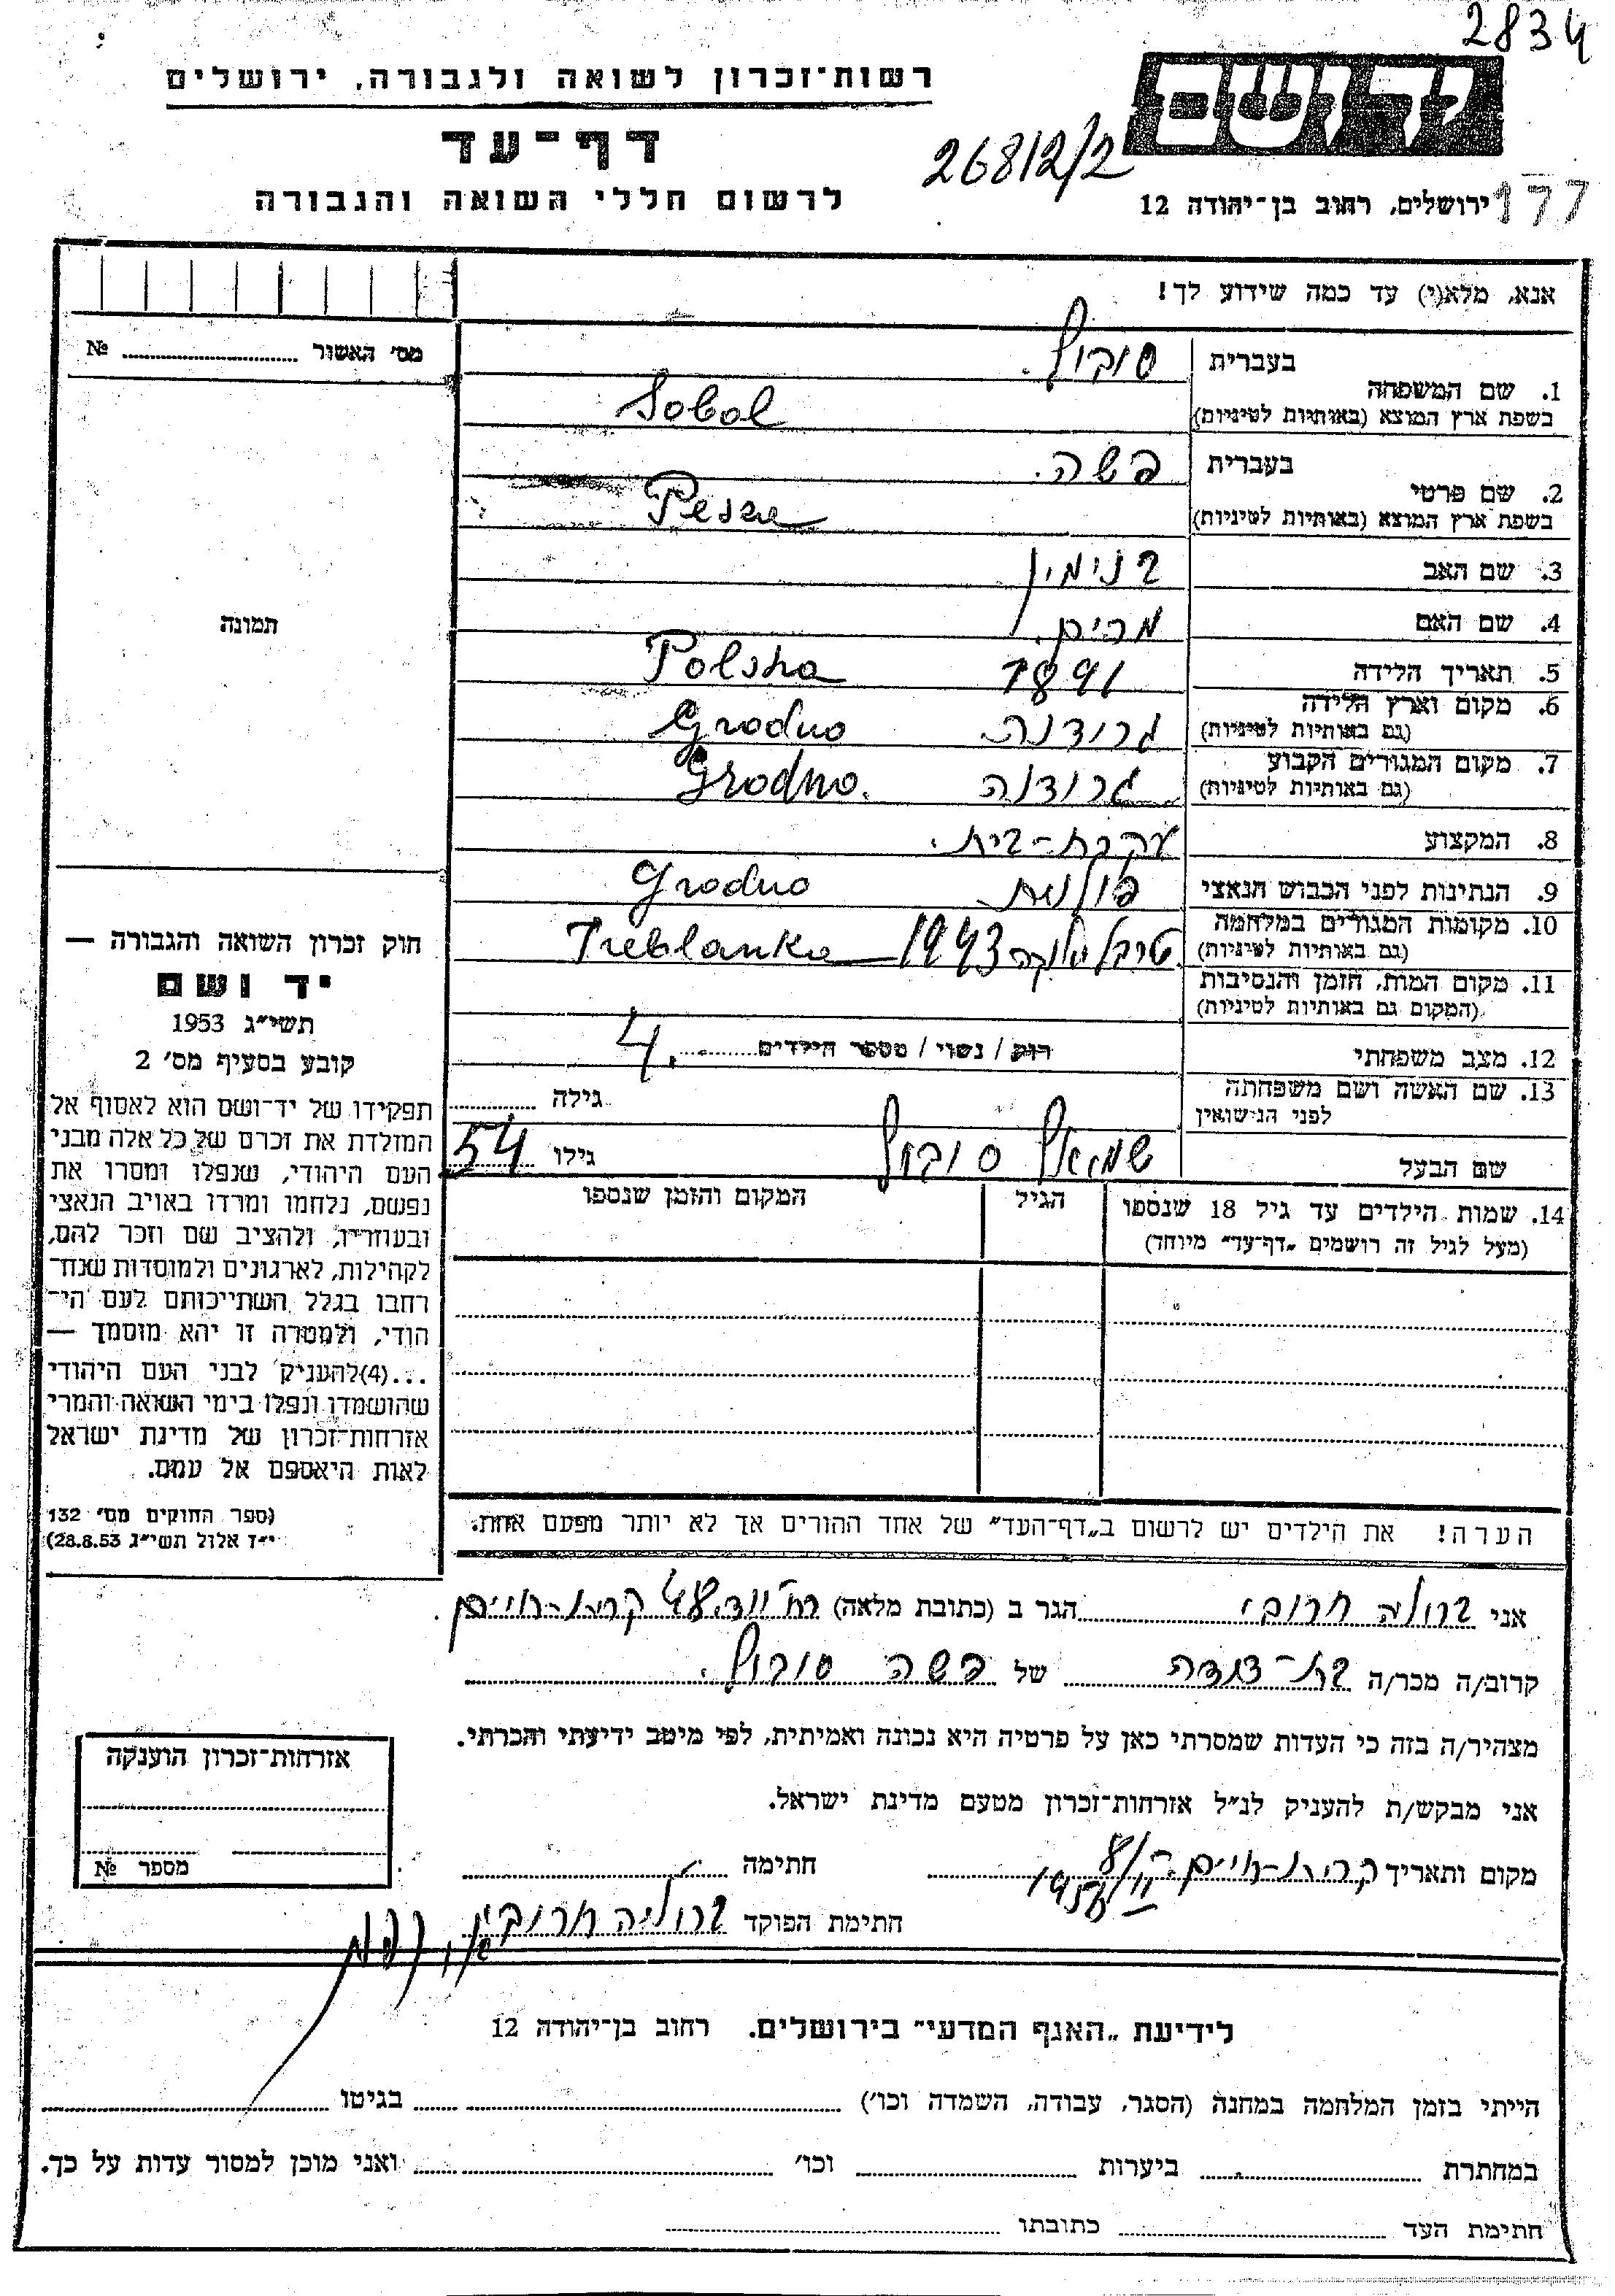 2834
רשות־זכרון לשואה ולגבורה, ירושלים
ד ושם
דף־עד
26812/2
לרשום חללי השואה והגבורה
ירושלים, רחוב בן־יהודה 12
177
אנא, מלא(י) עד כמה שידוע לך!
מס׳ האשור № ........
בעברית סובול.
1. שם המשפחה
בשפת ארץ המוצא (באותיות לטיניות) Sobol
בעברית פשה.
2. שם פרטי
בשפת ארץ המוצא (באותיות לטיניות) Pesze
3. שם האב בנימין
4. שם האם מרים.
5. תאריך הלידה 1891 Polska
6. מקום וארץ הלידה
(גם באותיות לטיניות) גרודנה. Grodno
7. מקום המגורים הקבוע
(גם באותיות לטיניות) גרודנה Grodno.
8. המקצוע עקרת-בית.
9. הנתינות לפני הכבוש הנאצי פולנית Grodno
10. מקומות המגורים במלחמה
(גם באותיות לטיניות) טרבלינקה 1943 Treblanka
11. מקום המות, הזמן והנסיבות
(המקום גם באותיות לטיניות)
12. מצב משפחתי רווק / נשוי / מספר הילדים ........ 4.
13. שם האשה ושם משפחתה
לפני הנישואין גילה ........
שם הבעל שמואל סובול גילו 54
14. שמות הילדים עד גיל 18 שנספו
(מעל לגיל זה רושמים „דף־עד״ מיוחד)
הגיל
המקום והזמן שנספו
הערה! את הילדים יש לרשום ב„דף־העד״ של אחד ההורים אך לא יותר מפעם אחת.
תמונה
חוק זכרון השואה והגבורה —
יד ושם
תשי״ג 1953
קובע בסעיף מס׳ 2
תפקידו של יד־ושם הוא לאסוף אל
המולדת את זכרם של כל אלה מבני
העם היהודי, שנפלו ומסרו את
נפשם, נלחמו ומרדו באויב הנאצי
ובעוזריו, ולהציב שם וזכר להם,
לקהילות, לארגונים ולמוסדות שנח־
רחבו בגלל השתייכותם לעם הי־
הודי, ולמטרה זו יהא מוסמך —
...(4)להעניק לבני העם היהודי
שהושמדו ונפלו בימי השואה והמרי
אזרחות־זכרון של מדינת ישראל
לאות היאספם אל עמם.
(ספר החוקים מס׳ 132
י״ז אלול תשי״ג 28.8.53)
אני ברוליה חרובי הגר ב (כתובת מלאה) קרית-חיים
קרוב/ה מכר/ה בת-דודה של פשה סובול.
מצהיר/ה בזה כי העדות שמסרתי כאן על פרטיה היא נכונה ואמיתית, לפי מיטב ידיעתי והכרתי.
אני מבקש/ת להעניק לנ״ל אזרחות־זכרון מטעם מדינת ישראל.
מקום ותאריך קרית-חיים. חתימה ........
חתימת הפוקד ברוליה חרובי
אזרחות־זכרון הוענקה
מספר №
לידיעת „האגף המדעי״ בירושלים. רחוב בן־יהודה 12
הייתי בזמן המלחמה במחנה (הסגר, עבודה, השמדה וכו׳) ........ בגיטו ........
במחתרת ........ ביערות ........ וכו׳ ........ ואני מוכן למסור עדות על כך.
חתימת העד ........ כתובתו ........